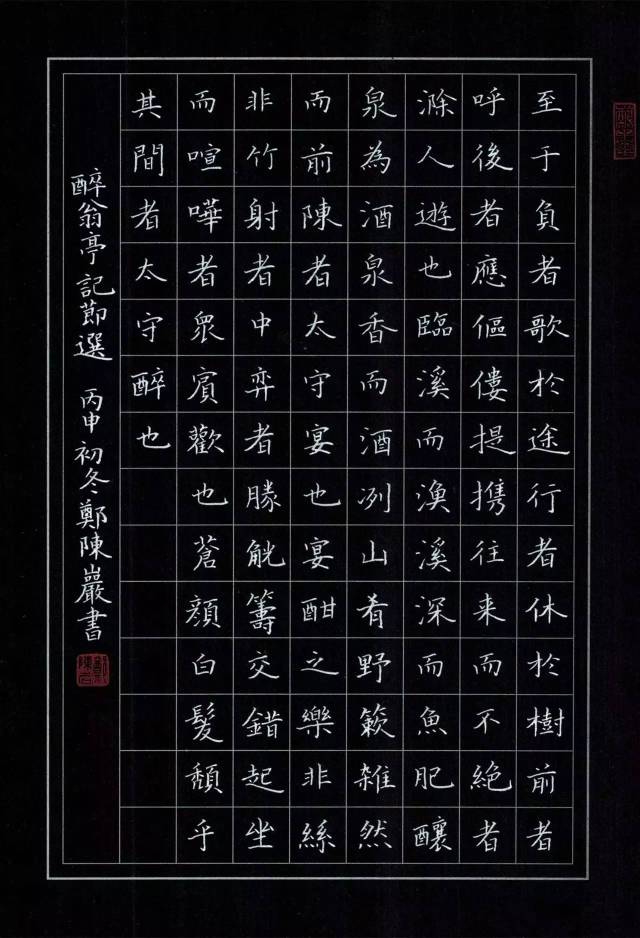 至于負者歌於途行者休於樹前者
呼後者應傴僂提携往来而不絶者
滁人遊也臨溪而漁溪深而魚肥釀
泉為酒泉香而酒冽山肴野簌雜然
而前陳者太守宴也宴酣之樂非絲
非竹射者中弈者勝觥籌交錯起坐
而喧嘩者眾賓歡也蒼顔白髮頹乎
其間者太守醉也
醉翁亭記節選 丙申初冬鄭陳巖書